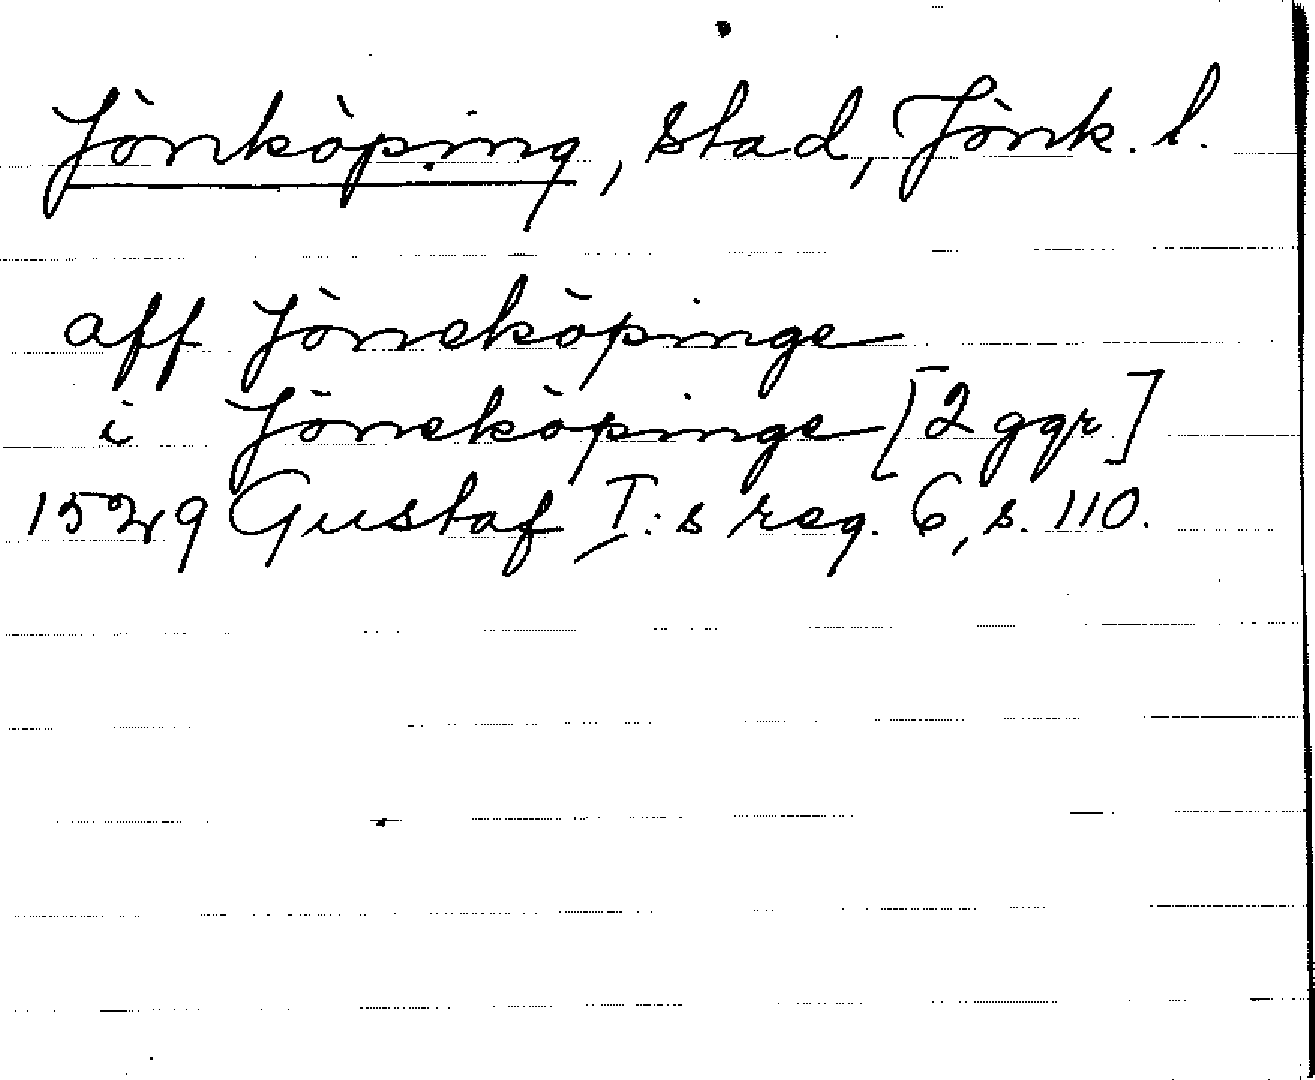 Jönköping, stad, Jönk. l.
aff Jöneköpinge
i Jöneköpinge [2 ggr]
1529 Gustaf I:s reg. 6, s. 110.